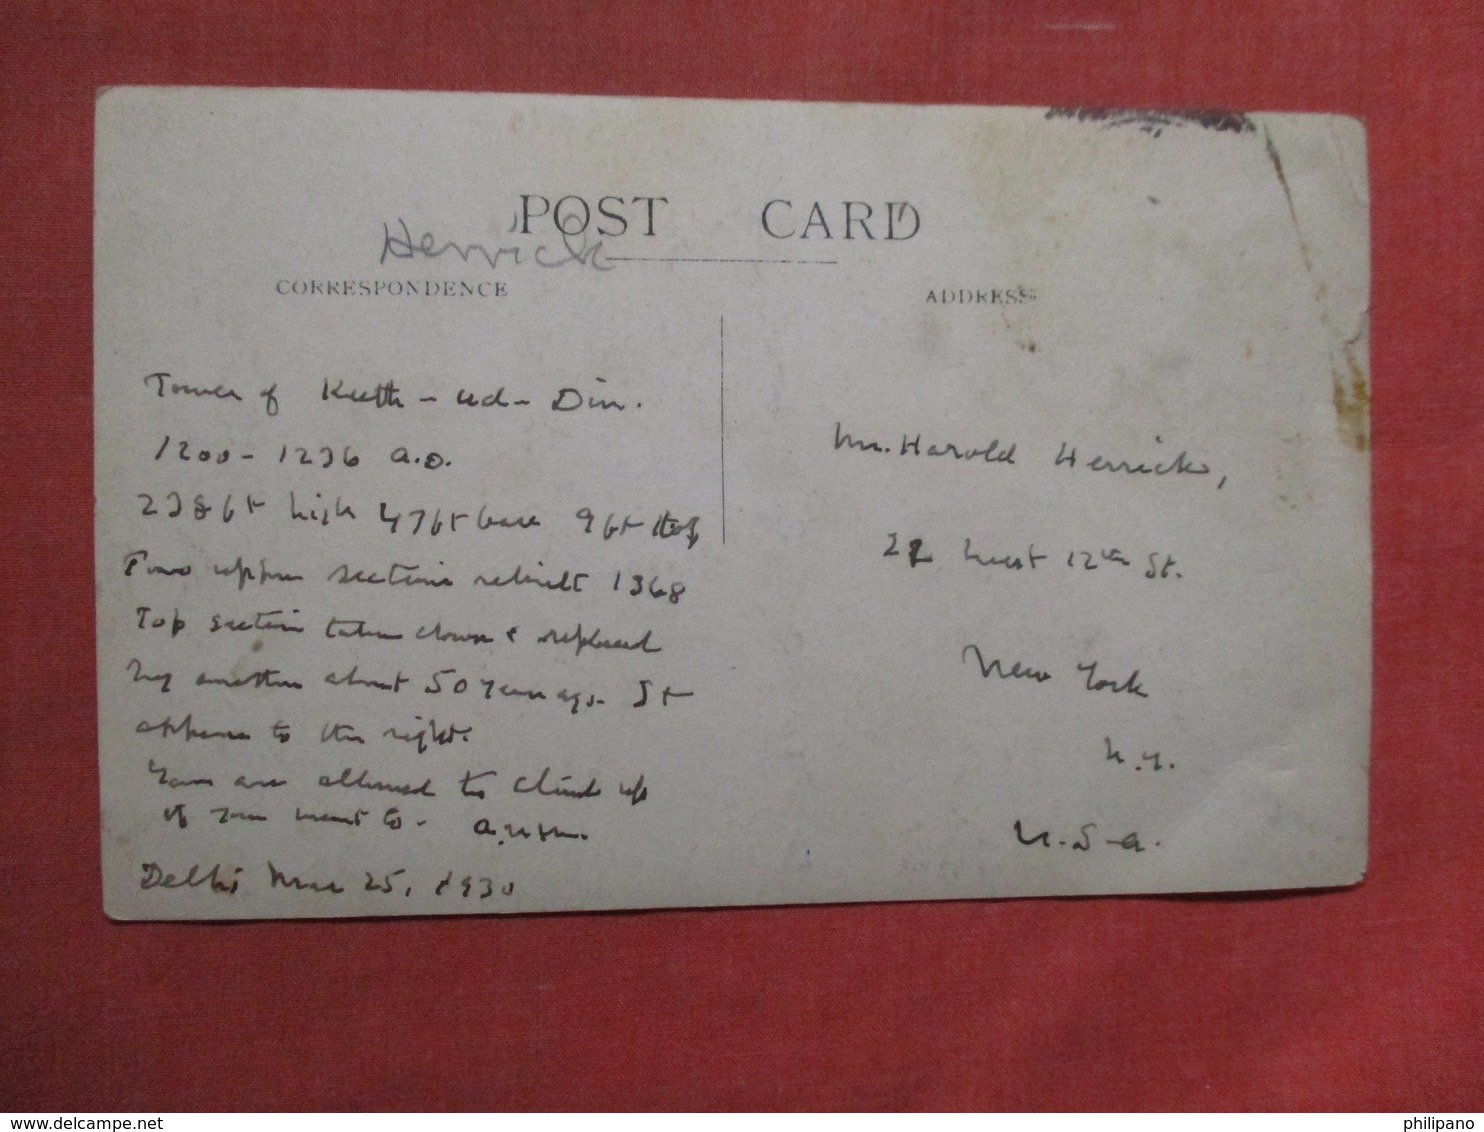 POST CARD
Herrick
CORRESPONDENCE
ADDRESS
Tower of Kutb-ud-Din.
1200-1236 A.D.
238 ft high 47 ft base 9 ft top
Two upper sections rebuilt 1368
Top section taken down & replaced
by another about 50 years ago. It
appears to the right.
You are allowed to climb up
if you want to.
Delhi, Mar 25, 1930
Mr. Harold Herrick,
22 West 12th St.
New York
N.Y.
U.S.A.
delcampe.net
philipano